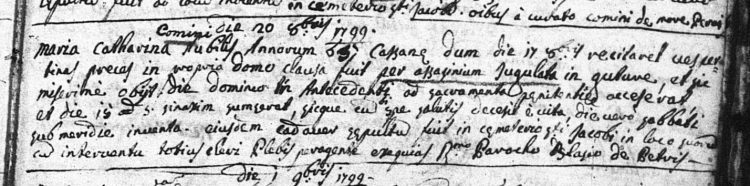 in cemeterio sti Jacobi. oibus à curato comini de nove
Comini die 20 8bris 1799
Maria Catharina Nubilis Annorum 37 Cassanę dum die 17 8bris recitaret vesper
tinas preces in propria domo clausa fuit per assasinium Jugulata in guture, et sic
miserime obijt. die dominico in Antecedenti ad sacramenta penitentię acceserat
et die 15 dti sinaxim sumserat, sicque cu spe salutis decesit è vita, die vero sabbati
sub meridie inventa. eiusdem cadaver sepultu fuit in cemeterio sti Jacobi in loco suorum
cu interventu totius cleri Plebis peragente exequias Rmo Parocho Blasio de Petris
die 1 9bris 1799